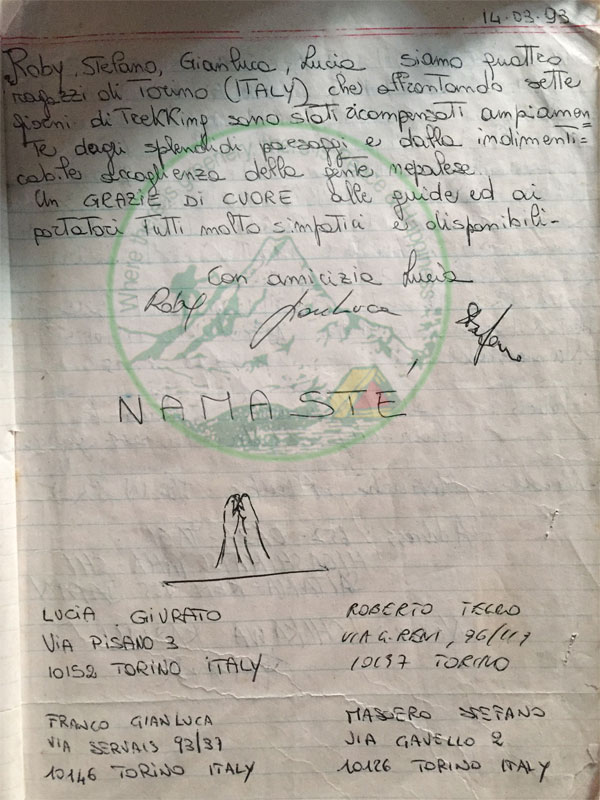 14.03.93
Roby, Stefano, Gianluca, Lucia siamo quattro
ragazzi di Torino (ITALY) che affrontando sette
giorni di TreKKing sono stati ricompensati ampiamen
te dagli splendidi paesaggi e dalla indimenti=
cabile accoglienza della gente nepalese.
Un GRAZIE DI CUORE alle guide ed ai
portatori tutti molto simpatici e disponibili-
Con amicizia Lucia
Roby Gianluca Stefano
NAMASTE'
LUCIA GIURATO
VIA PISANO 3
10152 TORINO ITALY
ROBERTO
VIA G. RENI, 96/
TORINO
FRANCO GIANLUCA
VIA SERVAIS 93/37
10146 TORINO ITALY
MASSERO STEFANO
VIA GAVELLO 2
10126 TORINO ITALY
Where the